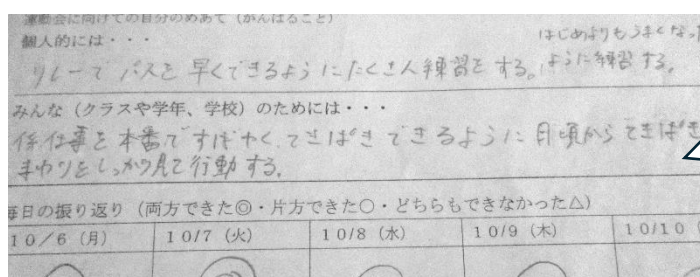 運動会に向けての自分のめあて（がんばること）
個人的には・・・
はじめよりもうまくなっ
ように練習する。
リレーでパスを早くできるようにたくさん練習をする。
みんな（クラスや学年、学校）のためには・・・
係仕事を本番ですばやく、てきぱきできるように日頃からてきぱき
まわりをしっかり見て行動する。
毎日の振り返り（両方できた◎・片方できた○・どちらもできなかった△）
10/6（月） 10/7（火） 10/8（水） 10/9（木） 10/10（